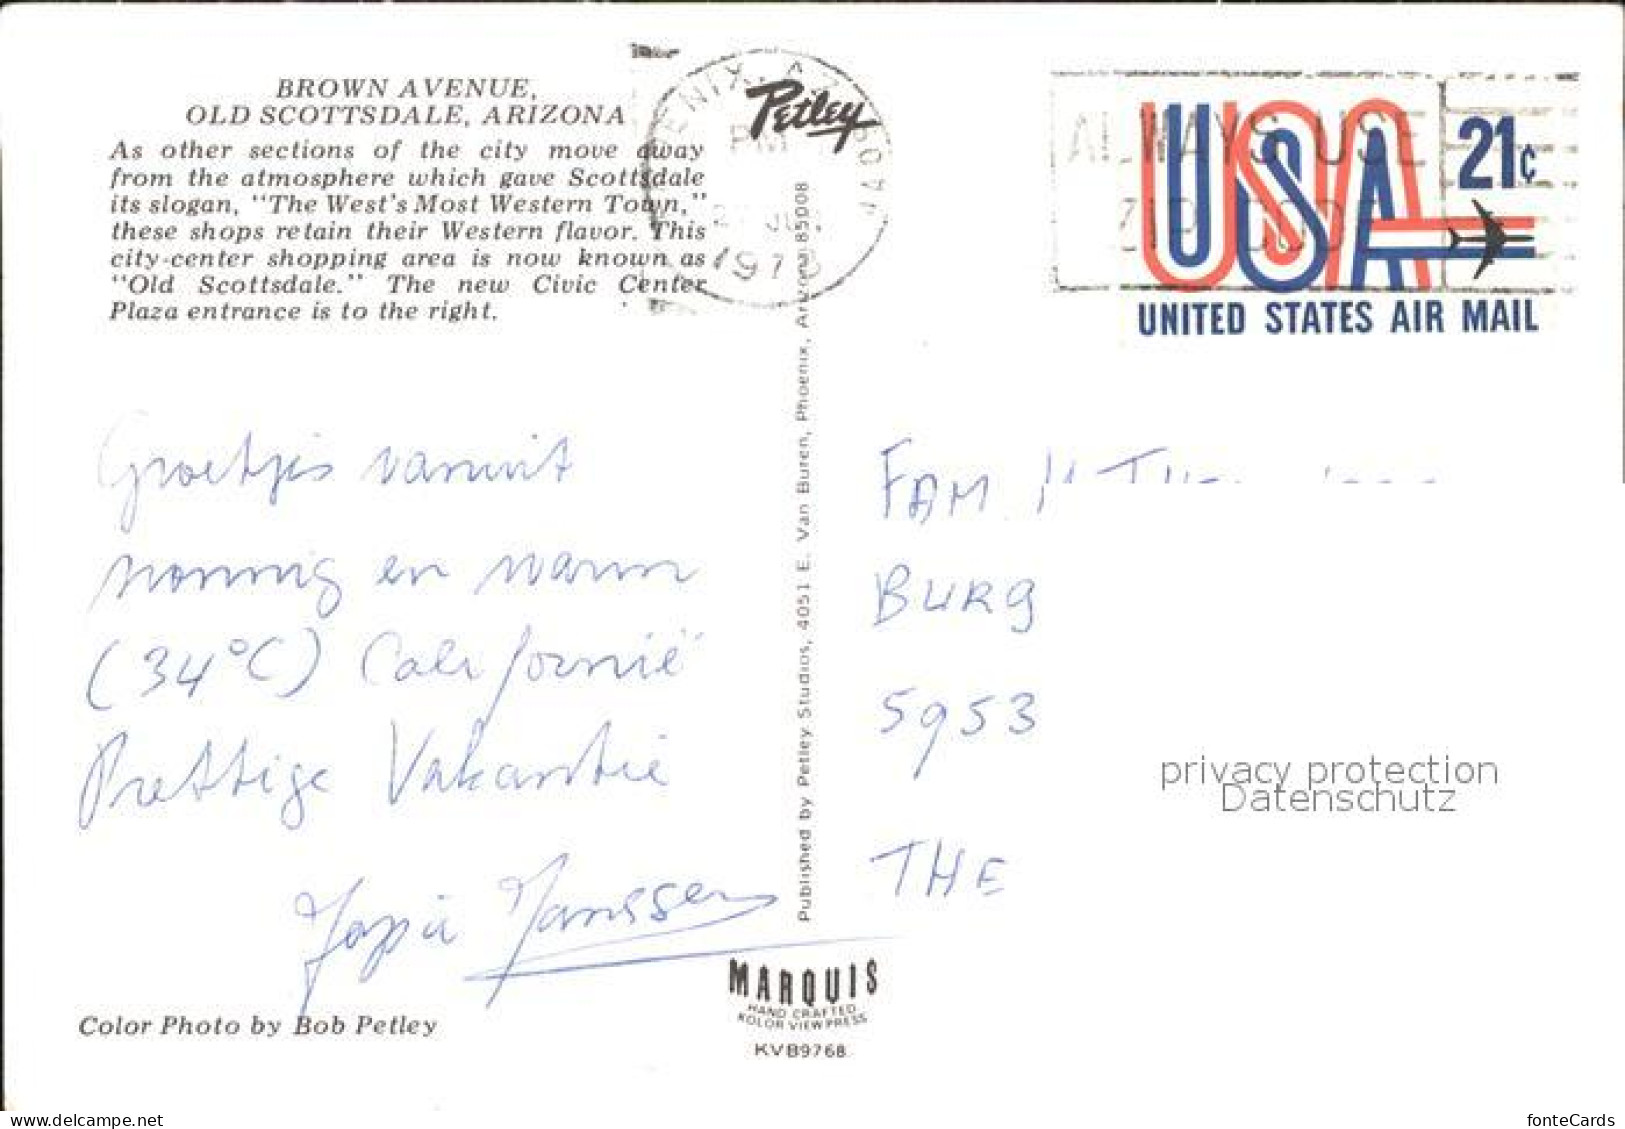 BROWN AVENUE,
OLD SCOTTSDALE, ARIZONA
As other sections of the city move away
from the atmosphere which gave Scottsdale
its slogan, "The West's Most Western Town,"
these shops retain their Western flavor. This
city-center shopping area is now known as
"Old Scottsdale." The new Civic Center
Plaza entrance is to the right.
Petley
PM
ALWAYS USE
ZIP CODE
USA 21c
UNITED STATES AIR MAIL
Groetjes vanuit
zonnig en warm
(34°C) Californië
Prettige Vakantie
Janssen
Published by Petley Studios, 4051 E. Van Buren, Phoenix, Arizona 85008
FAM
BURG
5953
THE
privacy protection
Datenschutz
MARQUIS
HAND CRAFTED
KOLOR VIEW PRESS
KVB9768
Color Photo by Bob Petley
www.delcampe.net
fonteCards